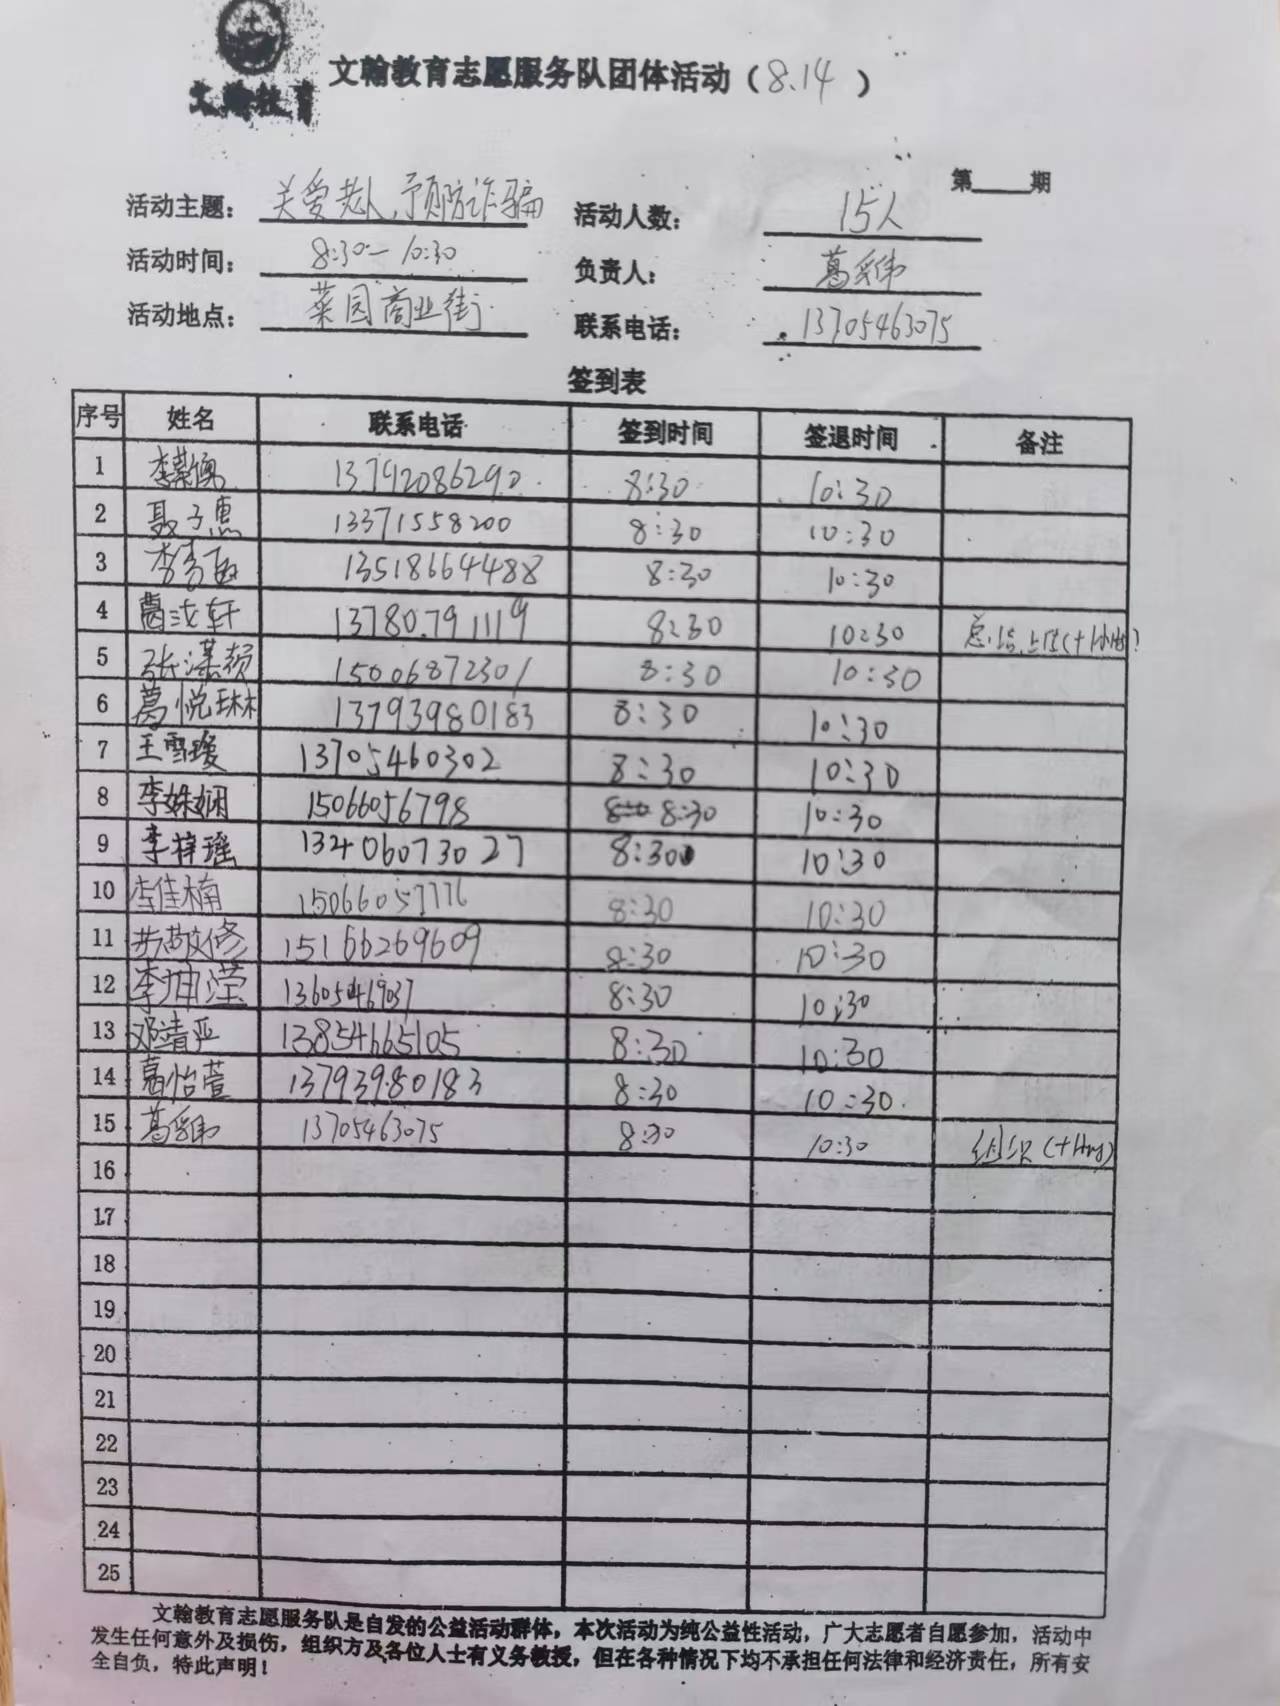 文翰教育
文翰教育志愿服务队团体活动（8.14）
第 期
活动主题： 关爱老人,预防诈骗 活动人数： 15人
活动时间： 8:30—10:30 负责人： 葛
活动地点： 菜园商业街 联系电话： 13705463075
签到表
序号 姓名 联系电话 签到时间 签退时间 备注
1 李 13792086290 8:30 10:30
2 聂子惠 13371558200 8:30 10:30
3 李 13518664488 8:30 10:30
4 葛 轩 13780791119 8:30 10:30 总结,
5 张 15006872301 8:30 10:30
6 葛悦琳 13793980183 8:30 10:30
7 王雪瓊 13705460302 8:30 10:30
8 李姝娴 15066056798 8:30 10:30
9 李梓瑶 13240607 3027 8:30 10:30
10 李佳楠 15066057776 8:30 10:30
11 敬修 15166269609 8:30 10:30
12 李坤滢 8:30 10:30
13 邓靖亚 13854665105 8:30 10:30
14 葛怡萱 13793980183 8:30 10:30
15 葛 13705463075 8:30 10:30 组织
16
17
18
19
20
21
22
23
24
25
文翰教育志愿服务队是自发的公益活动群体，本次活动为纯公益性活动，广大志愿者自愿参加，活动中
发生任何意外及损伤，组织方及各位人士有义务救援，但在各种情况下均不承担任何法律和经济责任，所有安
全自负，特此声明！